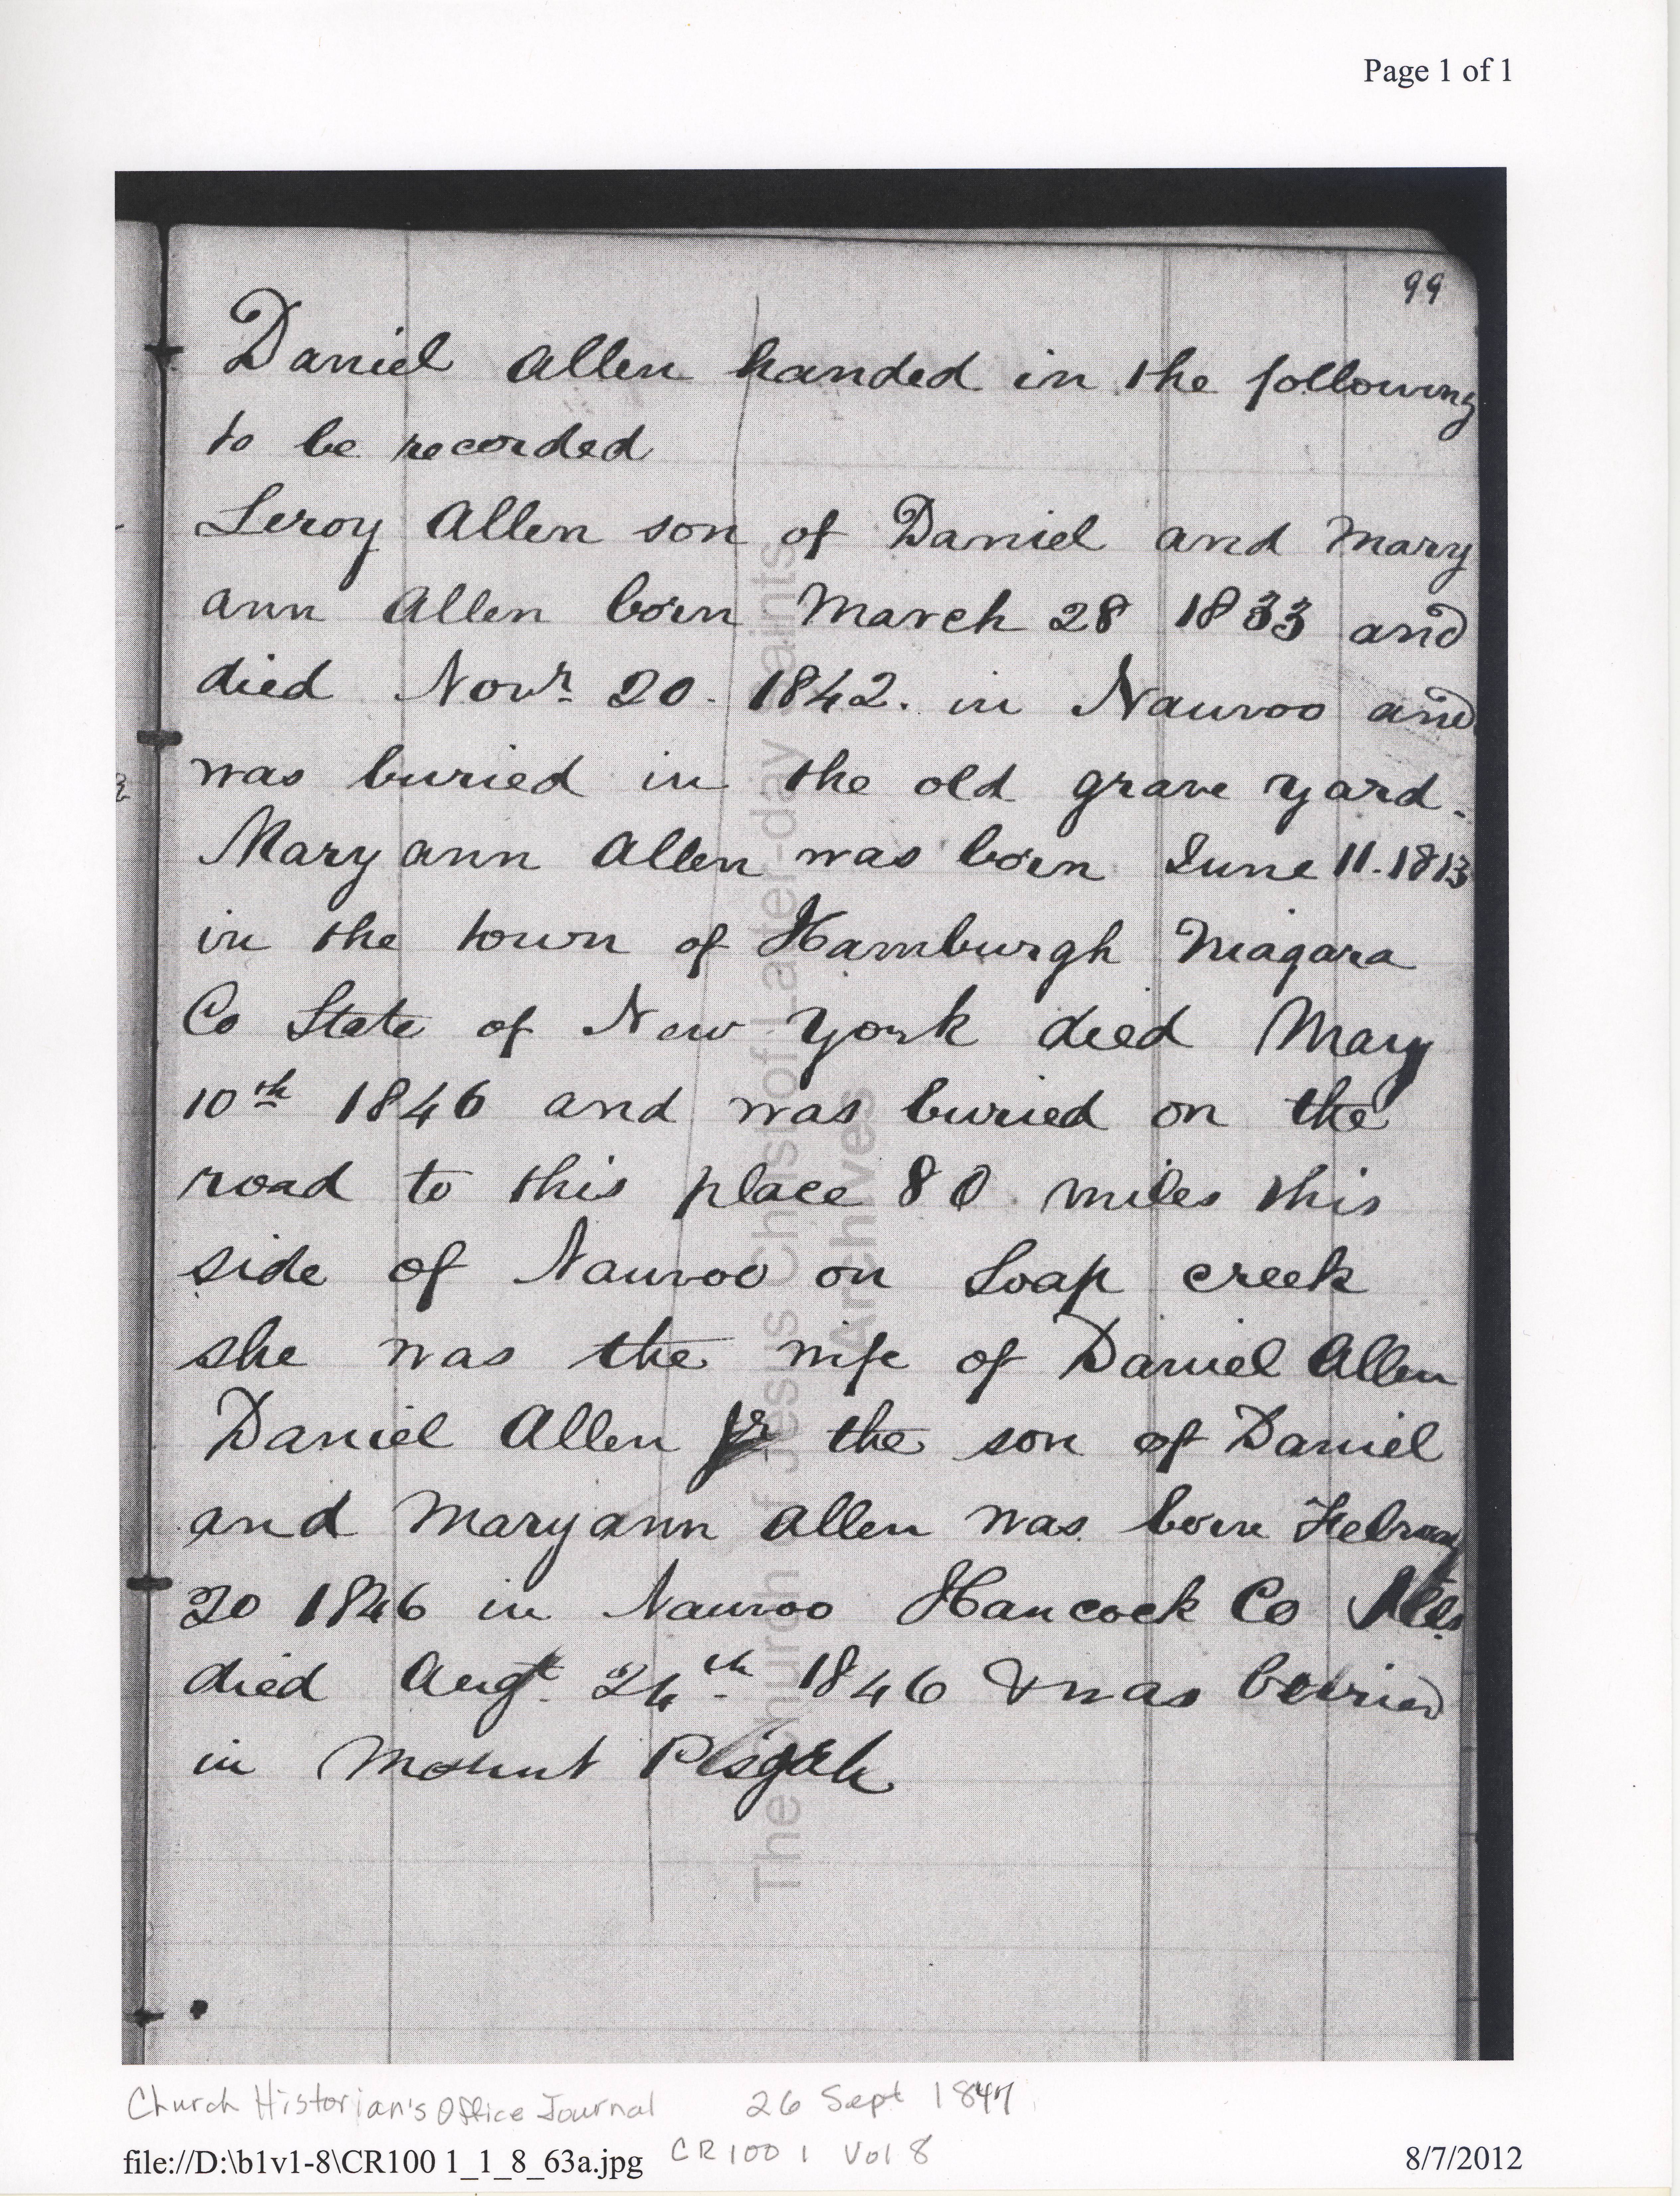 Page 1 of 1
99
Daniel Allen handed in the following
to be recorded
Leroy Allen son of Daniel and Mary
ann Allen born March 28 1833 and
died Novr 20. 1842. in Nauvoo and
was buried in the old grave yard.
Maryann Allen was born June 11. 1813
in the town of Hamburgh Niagara
Co State of New York died Mary
10th 1846 and was buried on the
road to this place 80 miles this
side of Nauvoo on Soap creek
she was the wife of Daniel Allen
Daniel Allen Jr the son of Daniel
and Maryann Allen was born
20 1846 in Nauvoo Hancock Co
died Augt. 24th. 1846 & was
in Mount Pisgah
The Church of Jesus Christ of Latter-day Saints
Archives
Church Historian's Office Journal 26 Sept 1847
file://D:\b1v1-8\CR100 1_1_8_63a.jpg CR 100 1 Vol 8 8/7/2012